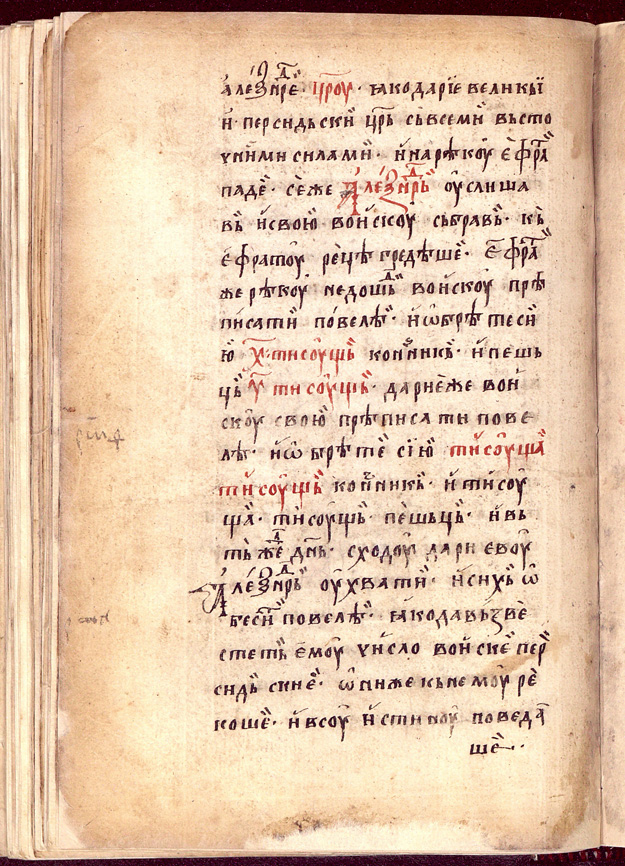 алеѯⷣнⷣрꙋ҆ црⷭ҇оу · ꙗкодарїе великыї
и҆ · персидьски црь̀ сьвсеми вьсто
чними силами · и҆нарѣкоу є҆фраⷮ
паде · сеже Алеѯаⷣнрь оу҆слиша
вь и҆свою во́искоу сьбравь · кь
є҆фратоу рецѣ грѣдѣше · є҆фраⷮ
же рѣкоу недошьⷣ во́искоу прѣ
писати по́велѣ · и҆ѡ҆брѣтесе
ю҆ ·х҃· тисоущь конникь · и҆пешь
ць ·у҃· тисоущь · дариеже вои
скоу свою̀ прѣписати пове
лѣ · и҆ѡ҆брѣте сїю̀ ти́соуща
ти́соущь конникь · и҆тисоу
ща · тисоущь пешьць · и҆вь
тьже днь · сходоу дариевоу
Алеѯаⷣнрь оу҆хвати · и҆сихь ѡ҆
бесити повелѣ · ꙗкодавьзве
стеть є҆моу число воиске пер
сидьские · ѡниже кьнемоу ре
коше · и҆всоу и҆стиноу поведа
ше ·